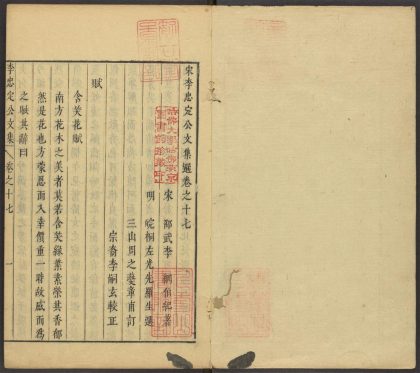 宋李忠定公文集選卷之十七
宋 邵武李 綱伯紀著
明 皖桐左光先羅生選
三山周之夔章甫訂
宗裔李嗣玄較正
賦
含笑花賦
南方花木之美者莫若含笑綠葉素榮其香郁
然是花也方蒙恩而入幸價重一時故感而為
之賦其辭曰
李忠定公文集
卷之十七
一